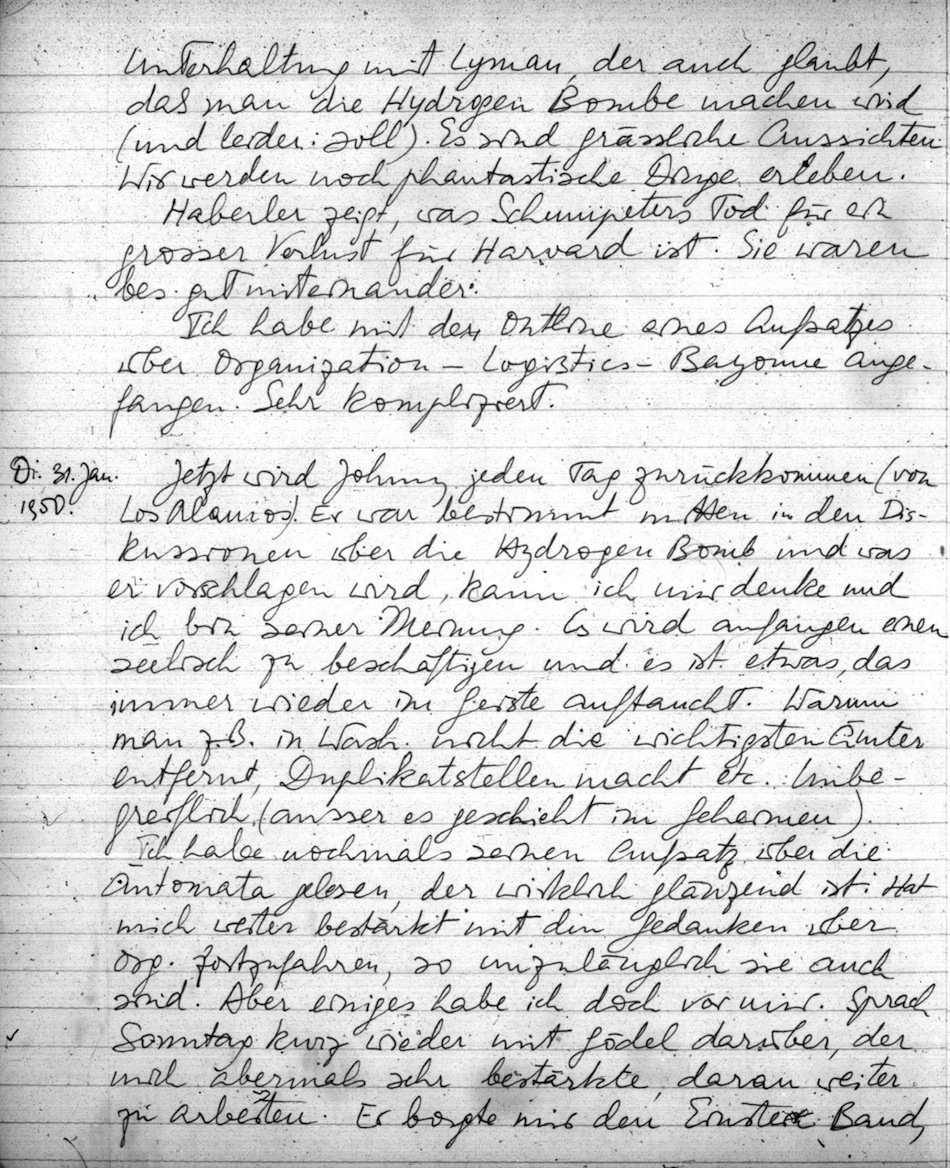 Unterhaltung mit Lyman, der auch glaubt,
daß man die Hydrogen Bombe machen wird
(und leider: soll). Es sind grässliche Aussichten
Wir werden noch phantastische Dinge erleben.
Haberler zeigt, was Schumpeters Tod für ein
grosser Verlust für Harvard ist. Sie waren
bes. gut miteinander.
Ich habe mit dem Outline eines Aufsatzes
über Organization – Logistics – Bayonne ange-
fangen. Sehr kompliziert.
Di. 31. Jan. Jetzt wird Johnny jeden Tag zurückkommen (von
1950. Los Alamos). Er war bestimmt mitten in den Dis-
kussionen über die Hydrogen Bomb und was
er vorschlagen wird, kann ich mir denke und
ich bin seiner Meinung. Es wird anfangen einen
seelisch zu beschäftigen und es ist etwas, das
immer wieder im Geiste auftaucht. Warum
man z.B. in Wash. nicht die wichtigsten Ämter
entfernt, Duplikatstellen macht etc. Unbe-
greiflich (ausser es geschieht im Geheimen).
Ich habe nochmals seinen Aufsatz über die
Automata gelesen, der wirklich glänzend ist. Hat
mich weiter bestärkt mit den Gedanken über
Org. fortzufahren, so unzulänglich sie auch
sind. Aber einiges habe ich doch vor mir. Sprach
Sonntag kurz wieder mit Gödel darüber, der
mich abermals sehr bestärkte, daran weiter
zu arbeiten. Er borgte mir den Band,